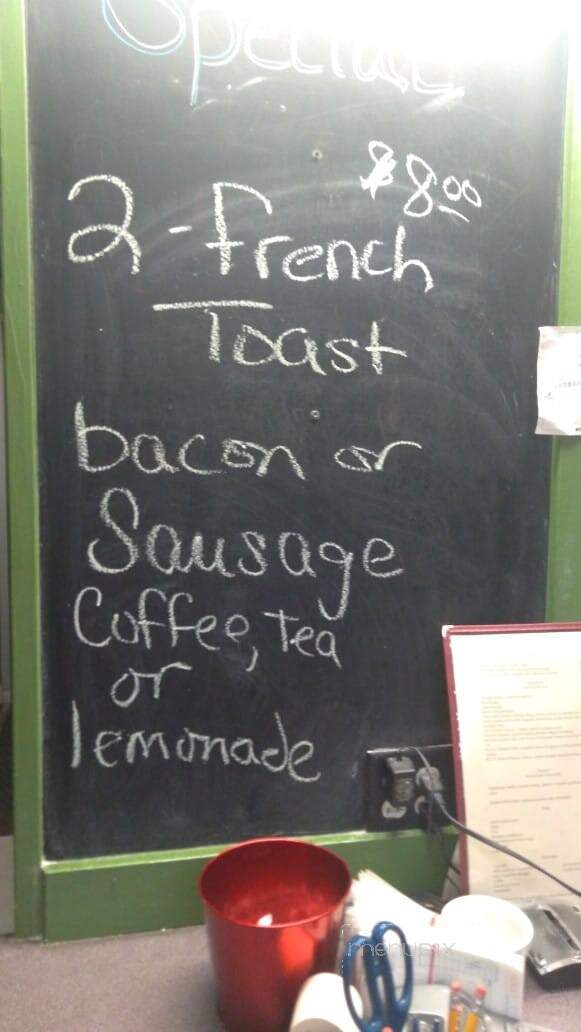 Special
$8.00
2-French
Toast
bacon or
Sausage
Coffee, Tea
or
lemonade
menupix